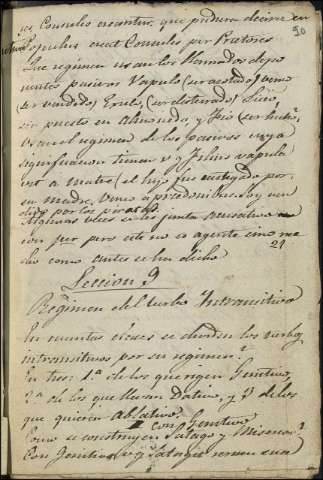 los Consules creantur, que pudiera decirse en
Populus creat Consules por Pretores 20
Que regimen usan los llamados depo
nentes pasivos Vapulo (ser azotado) veneo
(ser vendido) Exulo, (ser desterrado) Liceo,
ser puesto en Almoneda, y Fio (ser hecho?
Usan el regimen de los pasivos cuya
significacion tienen v g Filius vapula
est a matre (el hijo fue castigado por
su madre, veneo a predonibus soy ven
dido por los piratas
Algunas veces se les junta acusativo
con per pero este no es agente sino me
dio como antes se ha dicho
21
Leccion 9
Regimen del verbo Intransitivo
En cuantas clases se dividen los verbos
intransitivos por su regimen?
En tres: 1ª de los que rigen Genitivo,
2ª de los que llevan Dativo, y 3ª de los
que quieren Ablativo.
con Genitivo
Como se construyen Satago y Misereor?
Con Genitivo v g Satagit rerum sua